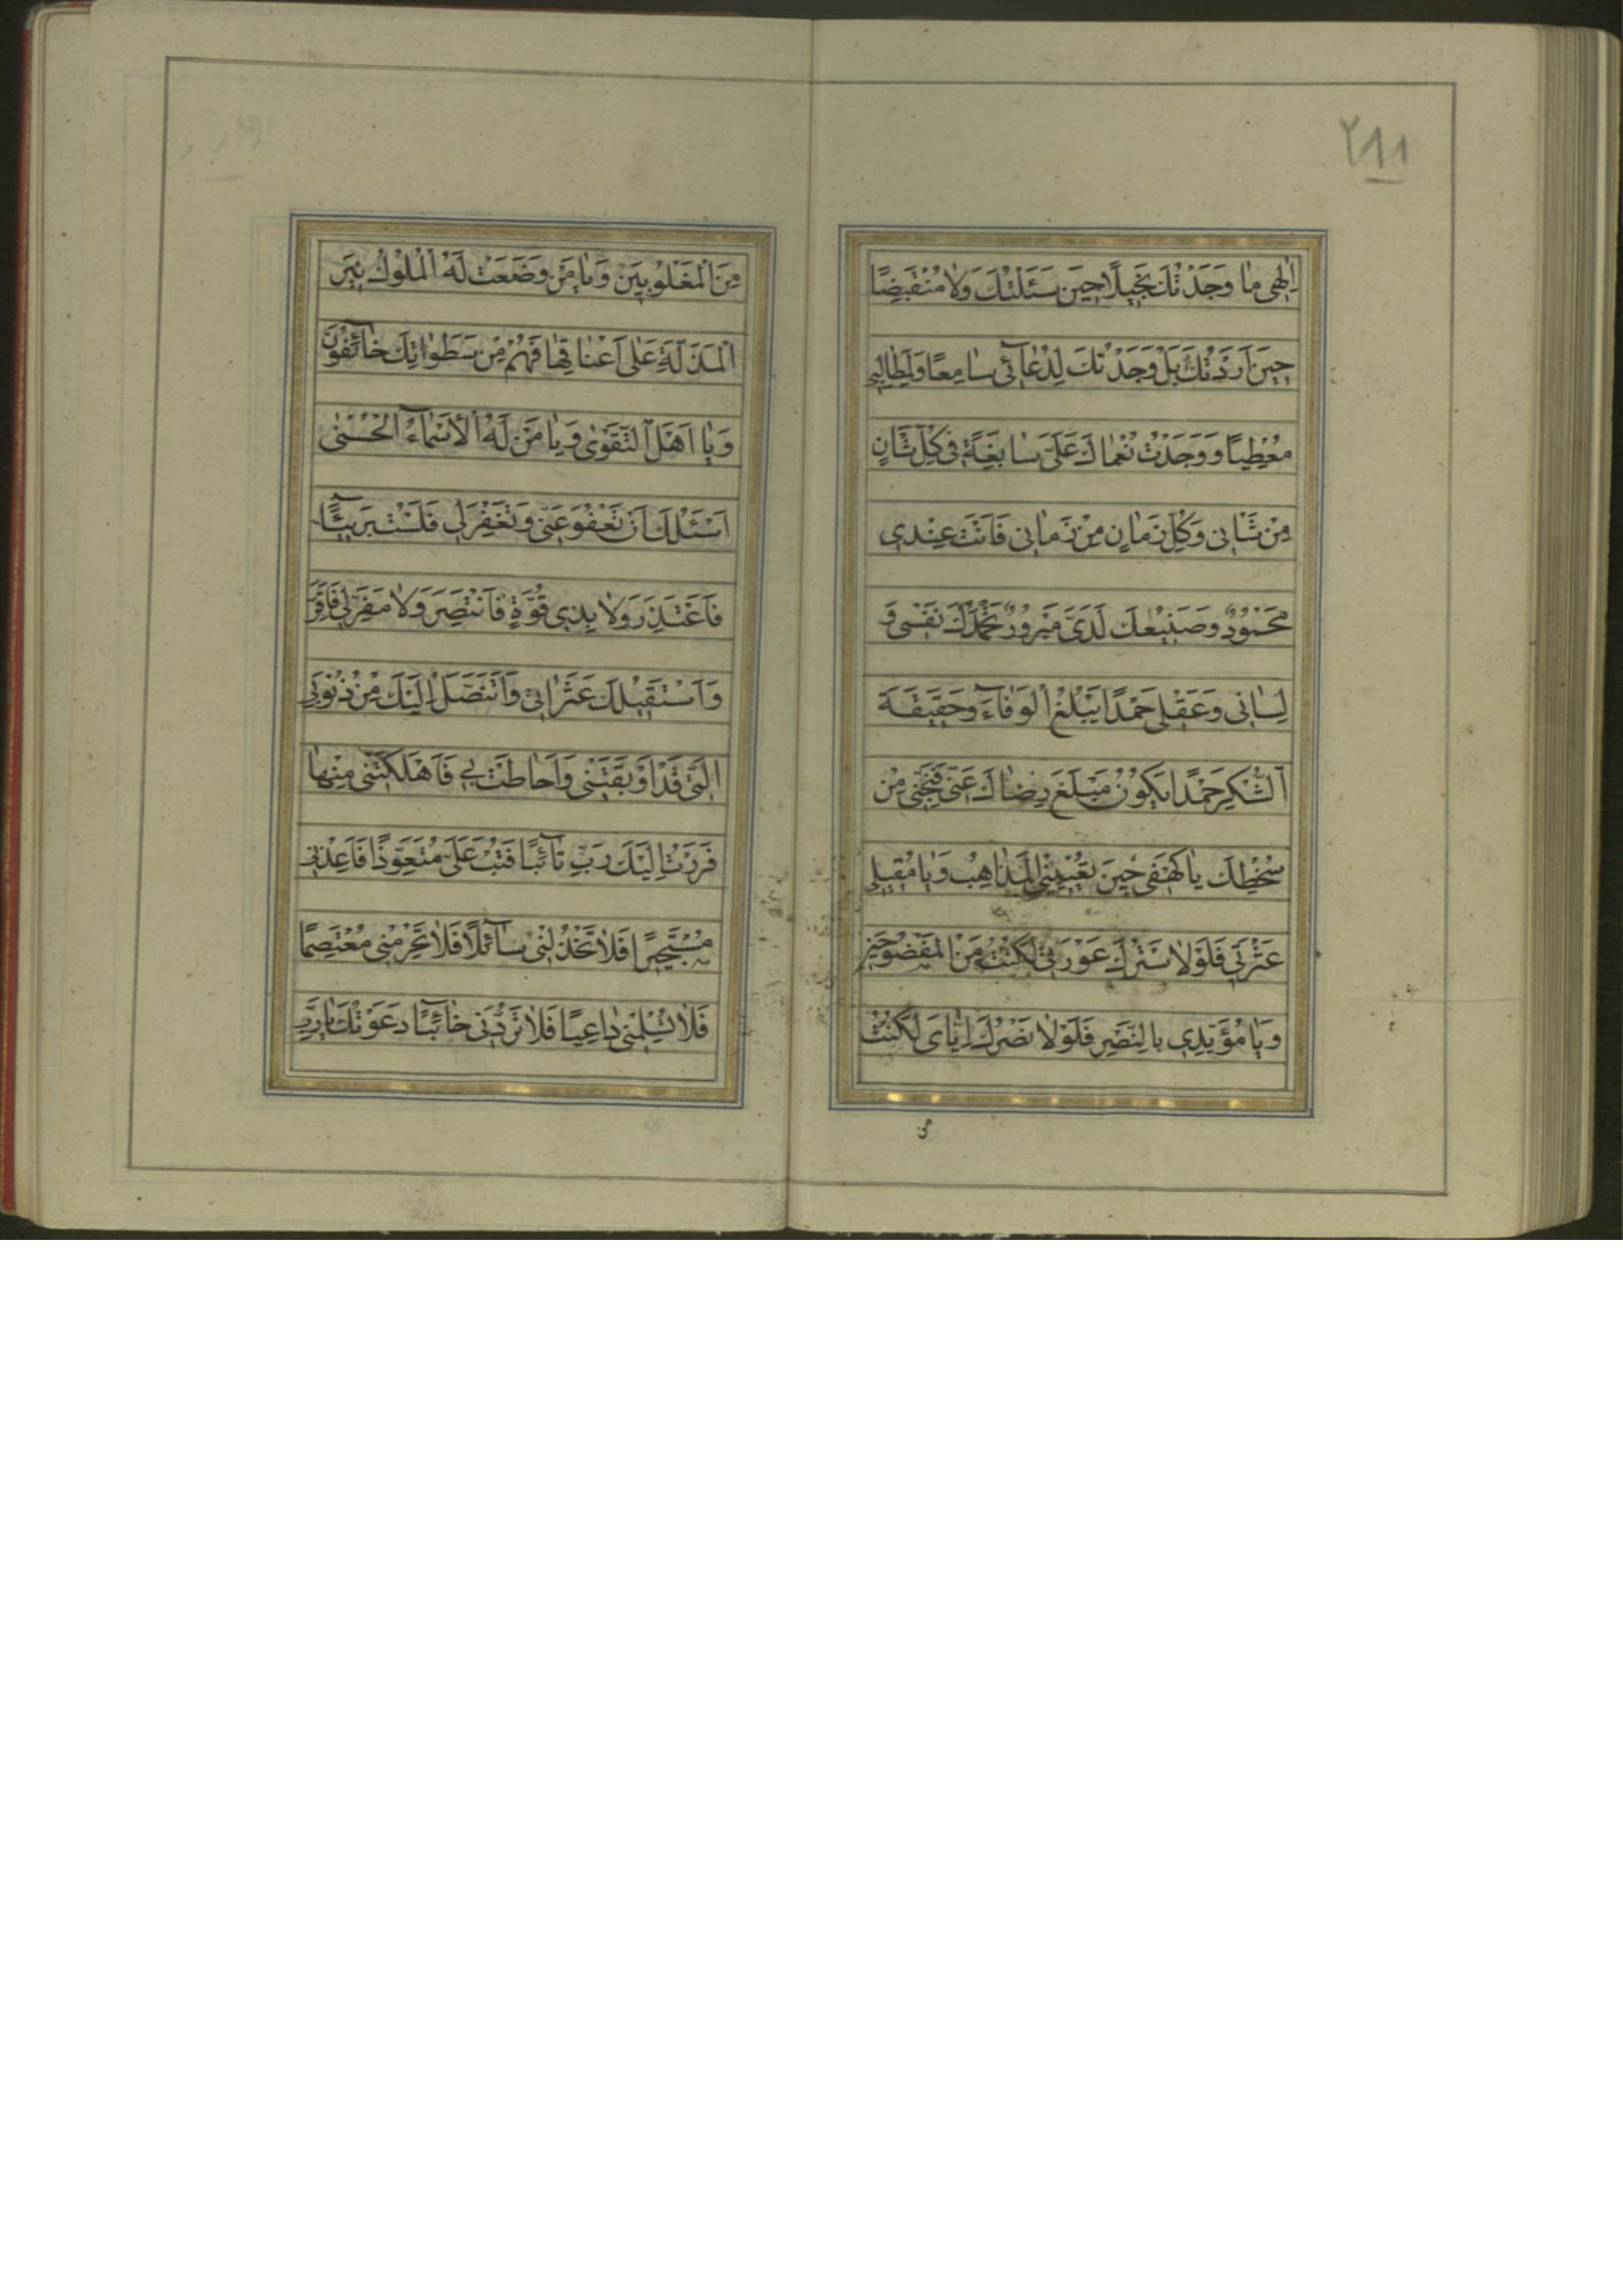 ٢٨٨
اِلٰهی مٰا وَجَدْتُكَ بَخیلًا حینَ سَئَلْتُكَ وَلاٰ مُنْقَبِضًا
حینَ اَرَدْتُكَ بَلْ وَجَدْتُكَ لِدُعٰآئی سٰامِعًا وَلِمَطٰالِبی
مُعْطِیًا وَوَجَدْتُ نُعْمٰاكَ عَلَیَّ سٰابِغَةً فی كُلِّ شَاْنٍ
مِنْ شَاْنی وَكُلِّ زَمٰانٍ مِنْ زَمٰانی فَاَنْتَ عِنْدی
مَحْمُودٌ وَصَنیعُكَ لَدَیَّ مَبْرُورٌ تَحْمَدُكَ نَفْسی وَ
لِسٰانی وَعَقْلی حَمْدًا یَبْلُغُ الْوَفٰآءَ وَحَقیقَةَ
الشُّكْرِ حَمْدًا یَكُونُ مَبْلَغَ رِضٰاكَ عَنّی فَنَجِّنی مِنْ
سُخْطِكَ یٰا كَهْفی حینَ تُعْیینِی الْمَذٰاهِبُ وَیٰا مُقیلی
عَثْرَتی فَلَوْلاٰ سَتْرُكَ عَوْرَتی لَكُنْتُ مِنَ الْمَفْضُوحینَ
وَیٰا مُؤَیِّدی بِالنَّصْرِ فَلَوْلاٰ نَصْرُكَ اِیّٰایَ لَكُنْتُ
مِنَ الْمَغْلُوبینَ وَیٰا مَنْ وَضَعَتْ لَهُ الْمُلُوكُ نیرَ
الْمَذَلَّةِ عَلٰی اَعْنٰاقِهٰا فَهُمْ مِنْ سَطَوٰاتِكَ خٰآئِفُونَ
وَیٰا اَهْلَ التَّقْوٰی وَیٰا مَنْ لَهُ الْاَسْمٰآءُ الْحُسْنٰی
اَسْئَلُكَ اَنْ تَعْفُوَ عَنّی وَتَغْفِرَ لی فَلَسْتُ بَریئًا
فَاَعْتَذِرَ وَلاٰ بِذی قُوَّةٍ فَاَنْتَصِرَ وَلاٰ مَفَرَّ لی فَاَفِرَّ
وَاَسْتَقیلُكَ عَثَرٰاتی وَاَتَنَصَّلُ اِلَیْكَ مِنْ ذُنُوبِیَ
الَّتی قَدْ اَوْبَقَتْنی وَاَحٰاطَتْ بی فَاَهْلَكَتْنی مِنْهٰا
فَرَرْتُ اِلَیْكَ رَبِّ تٰآئِبًا فَتُبْ عَلَیَّ مُتَعَوِّذًا فَاَعِذْنی
مُسْتَجیرًا فَلاٰ تَخْذُلْنی سٰآئِلًا فَلاٰ تَحْرِمْنی مُعْتَصِمًا
فَلاٰ تُسْلِمْنی دٰاعِیًا فَلاٰ تَرُدَّنی خٰآئِبًا دَعَوْتُكَ یٰا رَبِّ